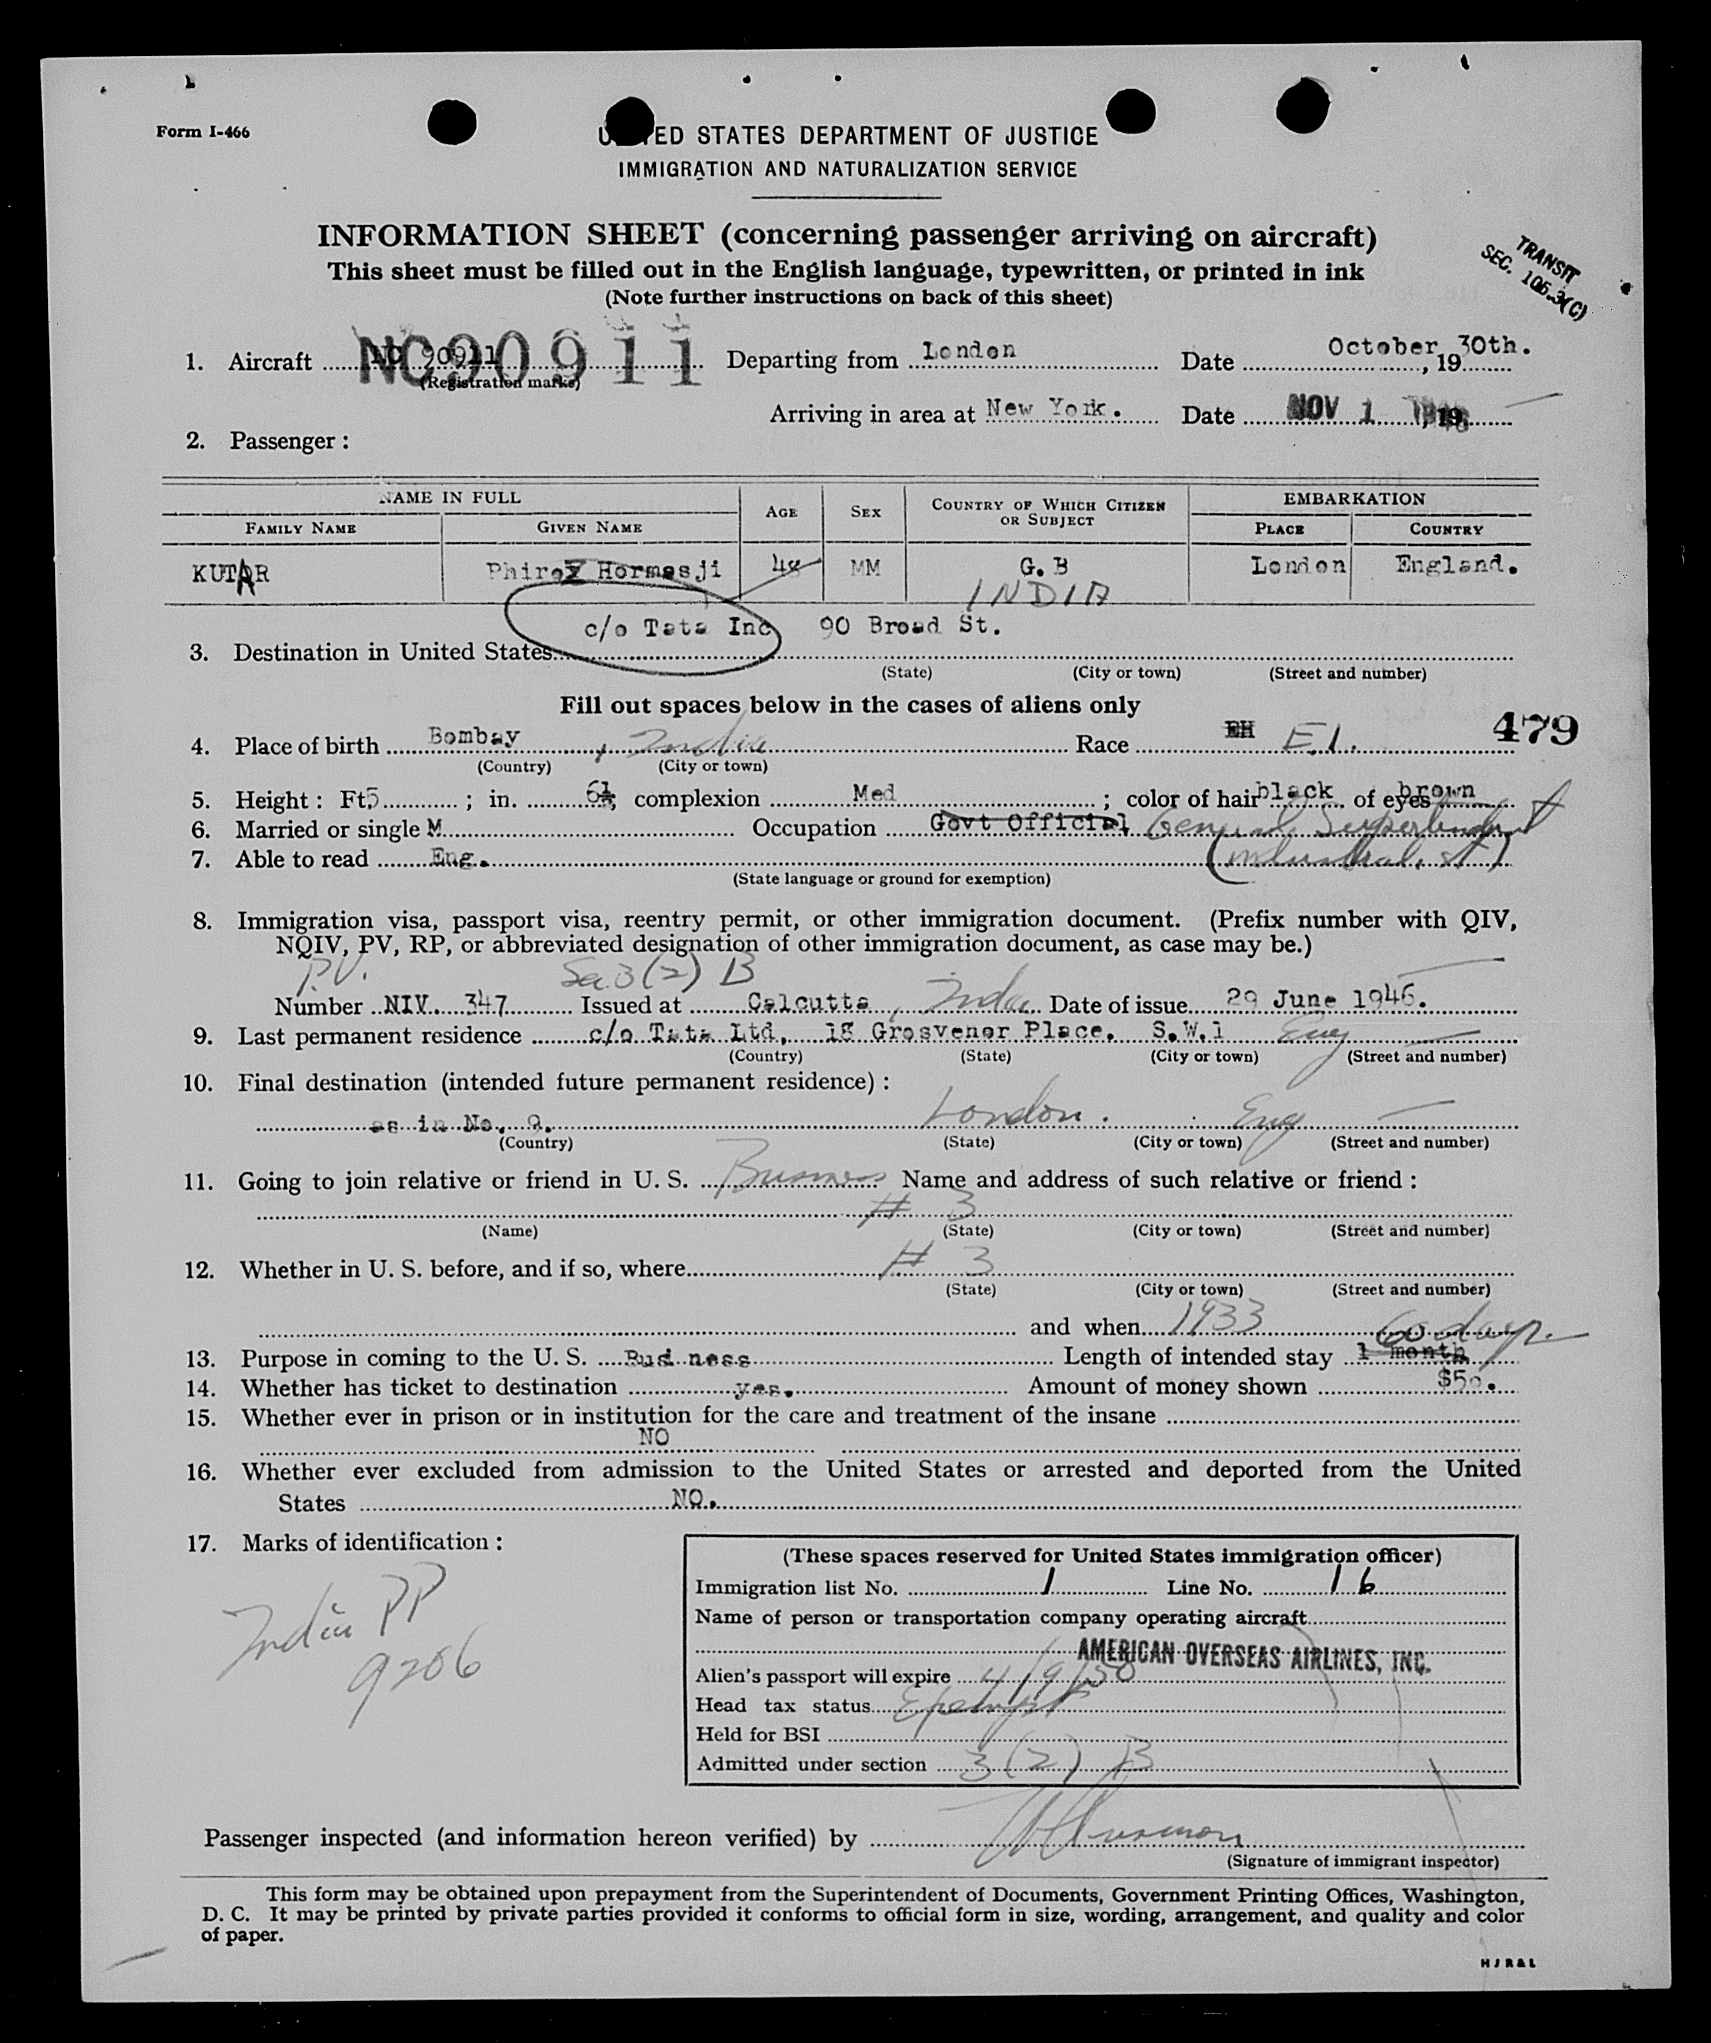 Form I-466
UNITED STATES DEPARTMENT OF JUSTICE
IMMIGRATION AND NATURALIZATION SERVICE
INFORMATION SHEET (concerning passenger arriving on aircraft)
This sheet must be filled out in the English language, typewritten, or printed in ink
(Note further instructions on back of this sheet)
TRANSIT
SEC. 105.3(C)
1. Aircraft NC 90911 NC90911 Departing from London Date October 30th. , 19
(Registration marks)
Arriving in area at New York. Date NOV 1 1946 , 19
2. Passenger :
NAME IN FULL AGE SEX COUNTRY OF WHICH CITIZEN OR SUBJECT EMBARKATION
FAMILY NAME GIVEN NAME PLACE COUNTRY
KUTAR Phiroz Hormasji 48 MM G.B London England.
INDIA
c/o Tata Inc 90 Broad St.
3. Destination in United States
(State) (City or town) (Street and number)
Fill out spaces below in the cases of aliens only
479
4. Place of birth Bombay, India Race EH E.I.
(Country) (City or town)
5. Height : Ft. 5 ; in. 6½ ; complexion Med ; color of hair black of eyes brown
6. Married or single M Occupation Govt Official General Superintendent
7. Able to read Eng. (industrialist)
(State language or ground for exemption)
8. Immigration visa, passport visa, reentry permit, or other immigration document. (Prefix number with QIV,
NQIV, PV, RP, or abbreviated designation of other immigration document, as case may be.)
P.V. Sec 3(2) B
Number NIV. 347 Issued at Calcutta, India Date of issue 29 June 1946.
9. Last permanent residence c/o Tata Ltd, 18 Grosvenor Place. S.W.1 Eng
(Country) (State) (City or town) (Street and number)
10. Final destination (intended future permanent residence) :
as in No. 9. London. Eng
(Country) (State) (City or town) (Street and number)
11. Going to join relative or friend in U. S. Business Name and address of such relative or friend :
# 3
(Name) (State) (City or town) (Street and number)
12. Whether in U. S. before, and if so, where # 3
(State) (City or town) (Street and number)
and when 1933 60 days.
13. Purpose in coming to the U. S. Business Length of intended stay 1 month
14. Whether has ticket to destination yes. Amount of money shown $50.
15. Whether ever in prison or in institution for the care and treatment of the insane
NO
16. Whether ever excluded from admission to the United States or arrested and deported from the United
States NO.
17. Marks of identification :
Indian PP
9206
(These spaces reserved for United States immigration officer)
Immigration list No. 1 Line No. 16
Name of person or transportation company operating aircraft
AMERICAN OVERSEAS AIRLINES, INC.
Alien's passport will expire 4/9/50
Head tax status Exempt
Held for BSI
Admitted under section 3(2) B
Passenger inspected (and information hereon verified) by
(Signature of immigrant inspector)
This form may be obtained upon prepayment from the Superintendent of Documents, Government Printing Offices, Washington,
D. C. It may be printed by private parties provided it conforms to official form in size, wording, arrangement, and quality and color
of paper.
H J R & L